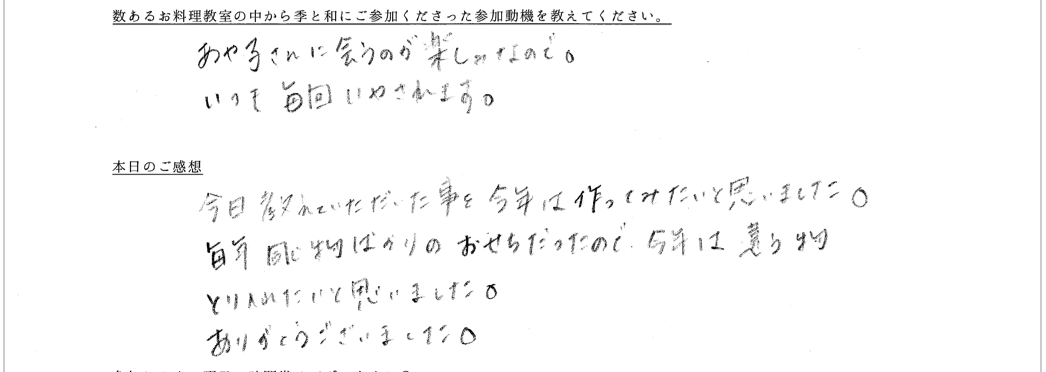 数あるお料理教室の中から季と和にご参加くださった参加動機を教えてください。
あや子さんに会うのが楽しみなので。
いつも毎回いやされます。
本日のご感想
今日教えていただいた事を今年は作ってみたいと思いました。
毎年同じ物ばかりのおせちだったので、今年は違う物
とり入れたいと思いました。
ありがとうございました。